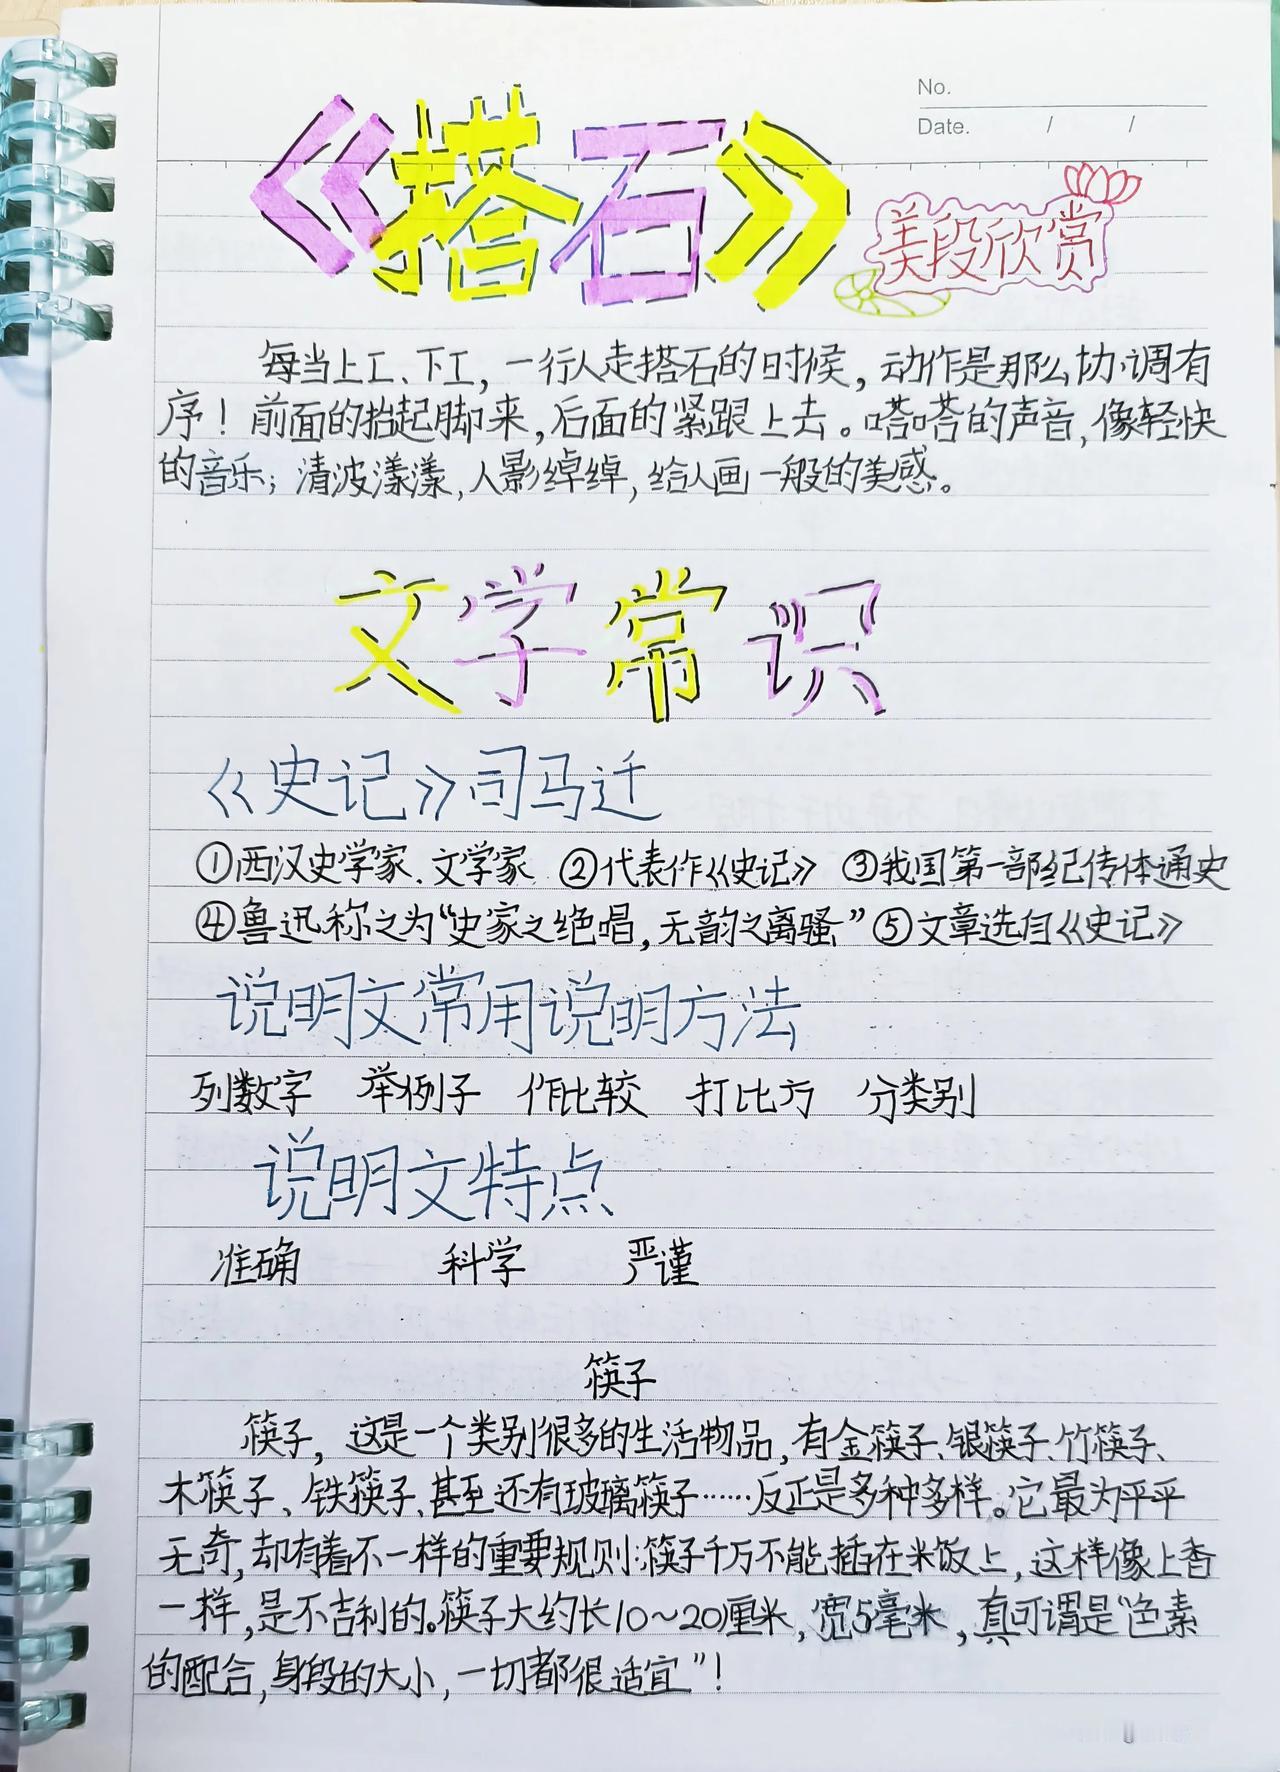 No.
Date. / /
《搭石》
美段欣赏
每当上工、下工，一行人走搭石的时候，动作是那么协调有
序！前面的抬起脚来，后面的紧跟上去。嗒嗒的声音，像轻快
的音乐；清波漾漾，人影绰绰，给人画一般的美感。
文学常识
《史记》司马迁
①西汉史学家、文学家 ②代表作《史记》 ③我国第一部纪传体通史
④鲁迅称之为“史家之绝唱，无韵之离骚” ⑤文章选自《史记》
说明文常用说明方法
列数字 举例子 作比较 打比方 分类别
说明文特点
准确 科学 严谨
筷子
筷子，这是一个类别很多的生活物品，有金筷子、银筷子、竹筷子、
木筷子、铁筷子、甚至还有玻璃筷子……反正是多种多样。它最为平平
无奇，却有着不一样的重要规则：筷子千万不能插在米饭上，这样像上香
一样，是不吉利的。筷子大约长10～20厘米，宽5毫米，真可谓是“色素
的配合，身段的大小，一切都很适宜”！